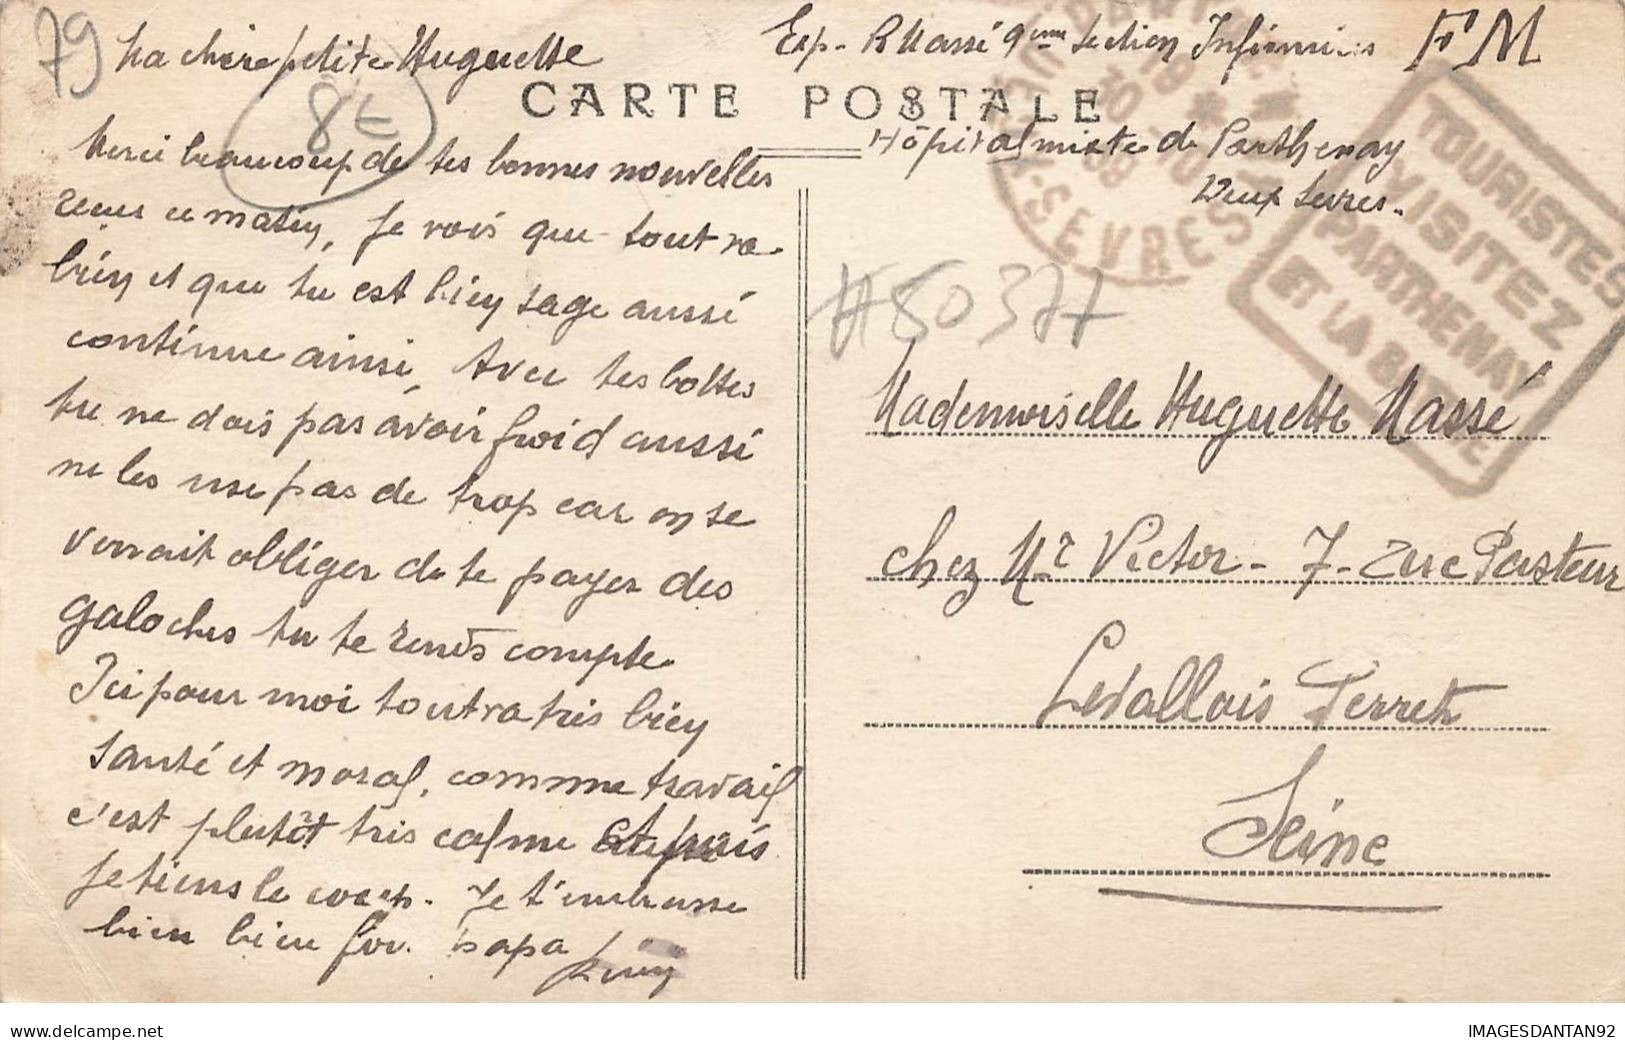 79
Ma chère petite Huguette
8€
Exp. R Massé 9ème Section Infirmiers FM
CARTE POSTALE
Hôpital mixte de Parthenay
Deux Sevres.
-SEVRES
TOURISTES
VISITEZ
PARTHENAY
ET LA
Merci beaucoup de tes bonnes nouvelles
recues ce matin, Je vois que tout va
bien et que tu est bien sage aussi
continue ainsi, Avec tes bottes
tu ne dois pas avoir froid aussi
ne les use pas de trop car on se
verrait obliger de te payer des
galoches tu te rends compte.
Ici pour moi tout va très bien
santé et moral, comme travail
c'est plutôt très calme et puis
je tiens le coup. Je t'embrasse
bien bien for. papa
H80377
Mademoiselle Huguette Massé
chez Mr Victor - 7 - rue Pasteur
Levallois Perret
Seine
www.delcampe.net
IMAGESDANTAN92